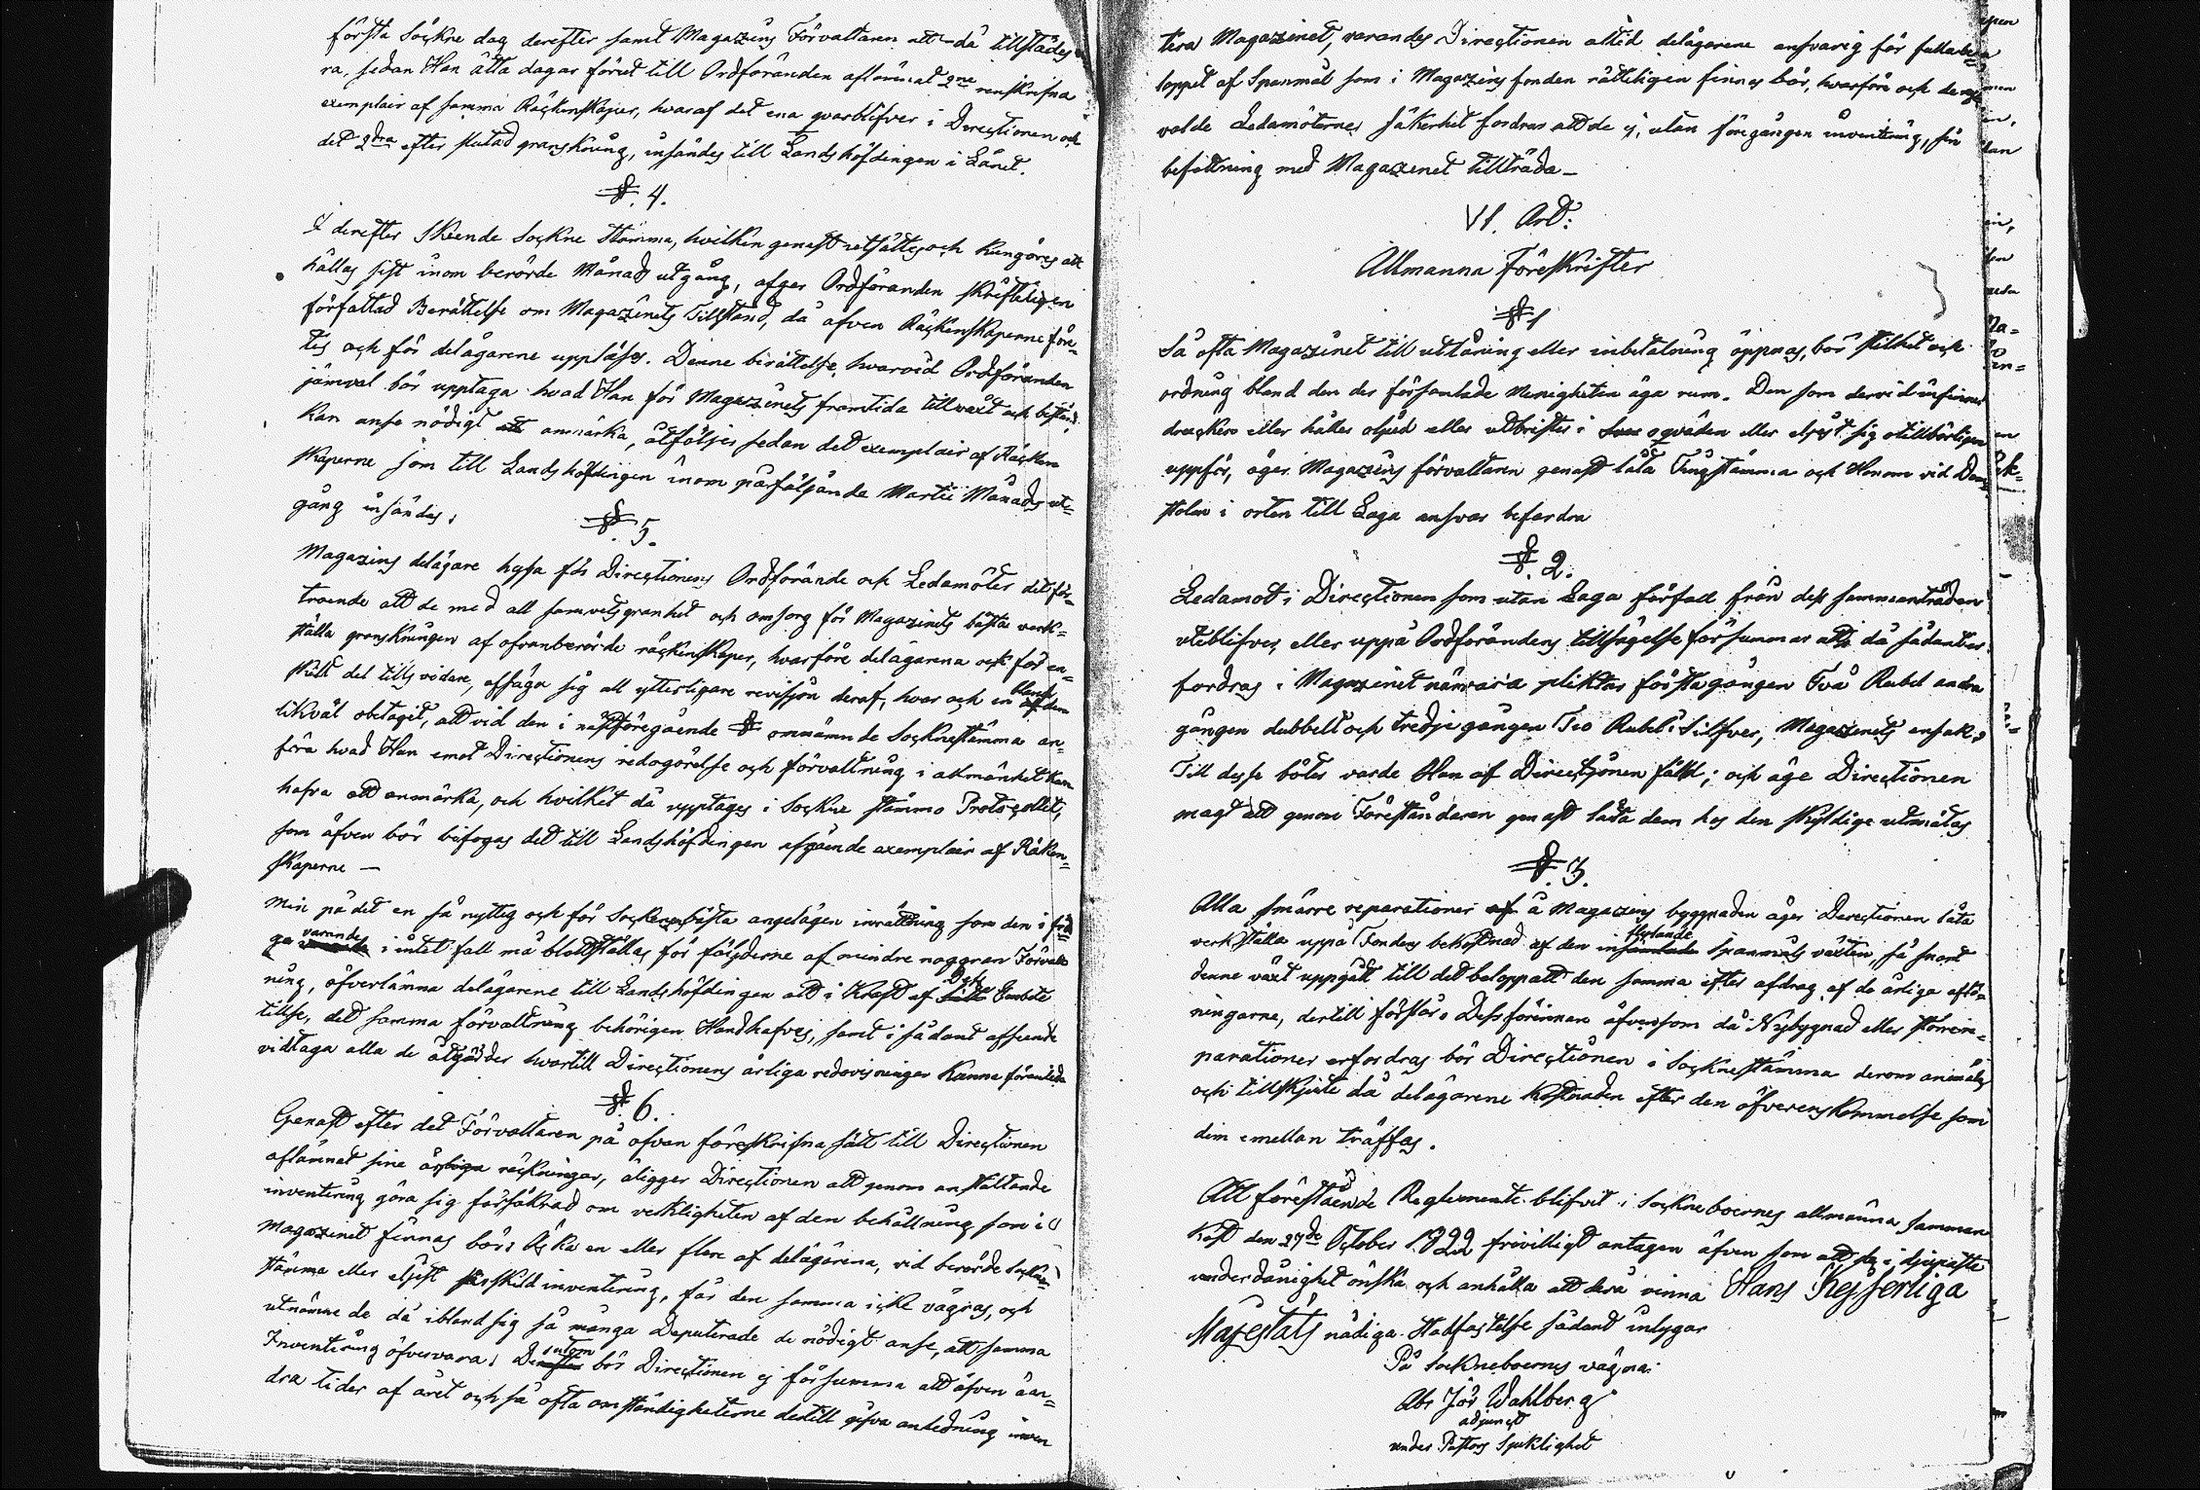 första Sockne dag derefter samt Magazins Förvaltaren att då tillstädes va=
ra, sedan Han åtta dagar förut till Ordföranden aflämnat 2ne renskrifna
exemplair af samma Räckenskaper, hvaraf det ena qvarblifver i Directionen och
det 2dra efter slutad granskning, insändes till Landshöfdingen i Länet.
§. 4.
I derefter skeende Sockne Stämma, hvilken genast utsättes och kungöres att
hållas sist inom berörde Månads utgång, afger Ordföranden skrifteligen
författad Berättelse om Magazinets Tillstånd, då äfven Räckenskaperne före=
tes och för delägarene uppläses. Denne berättelse, hvarvid Ordföranden
jämväl bör upptaga hvad Han för Magazinets framtida tillväxt och bestånd
kan anse nödigt att anmärka, åtföljer sedan det exemplair af Räcken
skaperne som till Landshöfdingen inom påföljande Martii Månads ut=
gång insändes.
§. 5.
Magazins delägare hysa för Directionens Ordförande och Ledamöter det för=
troende att de med all samvetsgranhet och omsorg för Magazinets bästa verk=
ställa granskningen af ofvanberörde räckenskaper, hvarföre delägarena ock för en=
skild del tills vidare, afsäga sig all ytterligare revision deraf, hvar och en bland af dem
likväl obetagit, att vid den i nästföregående § omnämnde Socknestämma an=
föra hvad Han emot Directionens redogörelse och förvaltning i allmänhet kan
hafva att anmärka, och hvilket då upptages i Sockne stämmo Protocollet,
som äfven bör bifogas det till Landshöfdingen afgående exemplair af Räken=
skaperne —
Men på det en så nyttig och för Socknens bästa angelägen inrättning som den i frå=
ga varande i intet fall må blottställas för följderne af mindre noggran Förvalt
ning, öfverlämna delägarene till Landshöfdingen att i Kraft af Dess Embete
tillse, det samma förvaltning behörigen Handhafves, samt i sådant afseende
vidtaga alla de åtgärder hvartill Directionens årliga redovisningar kunna föranleda
§. 6.
Genast efter det Förvaltaren på ofvan föreskrifna sätt till Directionen
aflämnat sine årliga räckningar, åligger Directionen att genom anställande
inventering göra sig försäkrad om verkligheten af den behållning som i
Magazinet finnas bör. Äska en eller flere af delägarena, vid berörde Sockne=
stämma eller eljest särskild inventering, får den samma icke vägras, och
utnämne de då ibland sig så många Deputerade de nödigt anse, att samma
Inventering öfvervara. Desutom bör Directionen ej försumma att äfven å an=
dra tider af året och så ofta omständigheterne dertill gifva anledning inven
tera Magazinet, varandes Directionen alltid delägarene ansvarig för fulla be=
loppet af Spanmål som i Magazins fonden rätteligen finnas bör, hvarföre ock de ny
valde Ledamöternes säkerhet fordrar att de ej, utan föregången inventering, sin
befattning med Magazinet tillträda —
VI. Art:
Allmanna Föreskrifter
§ 1
Så ofta Magazinet till utlåning eller inbetalning öppnas, bör stilhet och
ordning bland den der församlade Menigheten äga rum. Den som dervid infinnes
drucken eller håller oljud eller utbrister i oqväden eller eljest sig otillbörligen
uppför, äger Magazins förvaltaren genast låta Tingstämma och Honom vid Dom=
stolen i orten till Laga ansvar befordra
§. 2.
Ledamot i Directionen som utan Laga förfall från dess sammanträden
uteblifver, eller uppå Ordförandens tillsägelse försummar att då sådant er=
fordras i Magazinet närvara pliktar första gången Två Rubel andra
gången dubbelt och tredje gången Tio Rubel i Silfver, Magazinets ensak.
Till dessa böter varde Han af Directionen fälld; och äge Directionen
magt att genom Föreståndaren genast låta dem hos den skyldige utmätas
§. 3.
Alla smärre reparationer af å Magazins byggnaden äger Directionen låta
verkställa uppå Fondens bekostnad af den influtande Spanmåls växten, så snart
denne växt uppgått till det belopp att den samma efter afdrag af de årliga aflö=
ningarne, dertill förslår. Dess förinnan äfvensom då Nybygnad eller större re=
parationer erfordras bör Directionen i Socknestämma derom anmäla
och tillskjute då delägarene kostnaden efter den öfverenskommelse som
dem emellan träffas.
Att förestående Reglemente blifvit i Sockneboernes allmänna samman
komst den 27de October 1822 frivilligt antagen äfven som att de i djupaste
underdånighet önska och anhålla att dera vinna Hans Kejserliga
Majestäts nådiga Stadfästelse sådant intygar
På Sockneboernes vägna:
Abr Joh Wahlberg
adjunct
under Pastors Sjuklighet